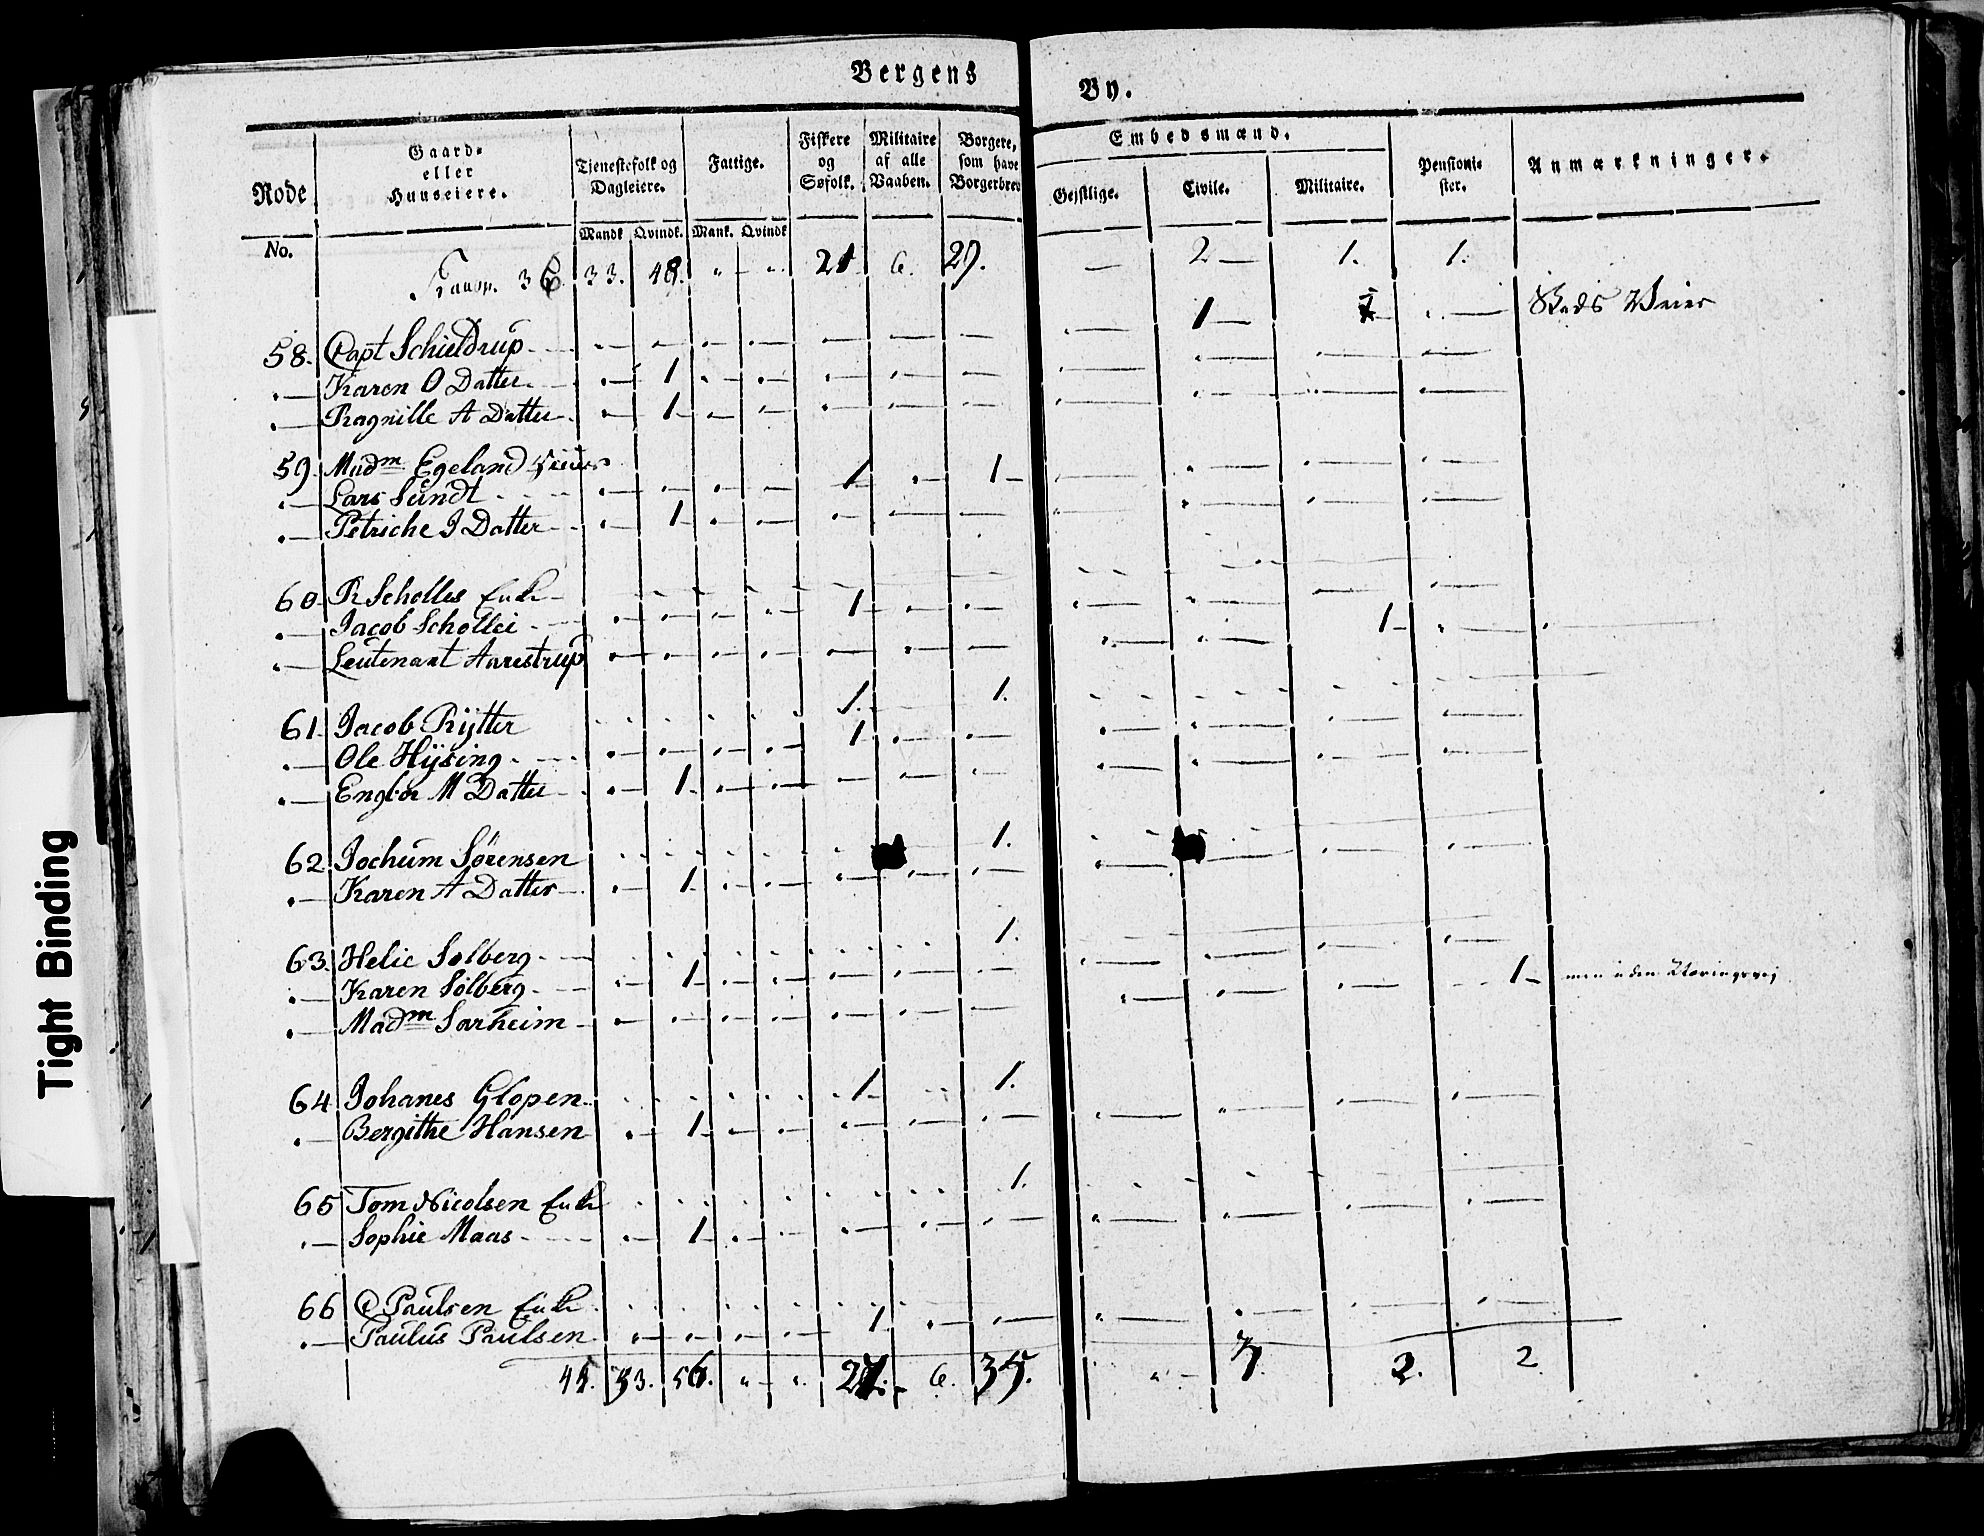 Bergens By.
Rode No. | Gaard- eller Huuseiere. | Tjenestefolk og Dagleiere. Mandk Qvindk. | Fattige. Mank. Qvindk | Fiskere og Søfolk. | Militaire af alle Vaaben. | Borgere, som have Borgerbrev | Embedsmænd. Gejstlige. Civile. Militaire. | Pensionister. | Anmærkninger.
Transp. 36. 33. 48. " — ". 21 6. 29. — 2 — 1. 1.
58. Capt Schieldrup 1 —
" — Karen O Datter 1
" — Ragnille A Datter 1
59. Madm Egeland
" — Lars Sundt 1 1
" — Petriche I Datter 1
60. R Scholles Enke
" — Jacob Schollei 1
" — Leutenant Aarestrup 1
61. Jacob Rÿtter 1. 1.
" — Ole Hÿsing 1
" — Engbor M Datter 1
62. Jochum Sørensen 1.
" — Karen A Datter 1
63. Helie Solberg 1.
" — Karen Solberg 1
" — Madm Sarheim 1
64. Johanes Glopen 1 1.
" — Bergithe Hansen 1
65 Tom Nicolsen Enke 1.
" — Sophie Maas 1
66 C Paulsen Enke
" — Paulus Paulsen 1
45. 33. 56. " — ". 27. 6. 35. " — 2. 2.
Tight Binding